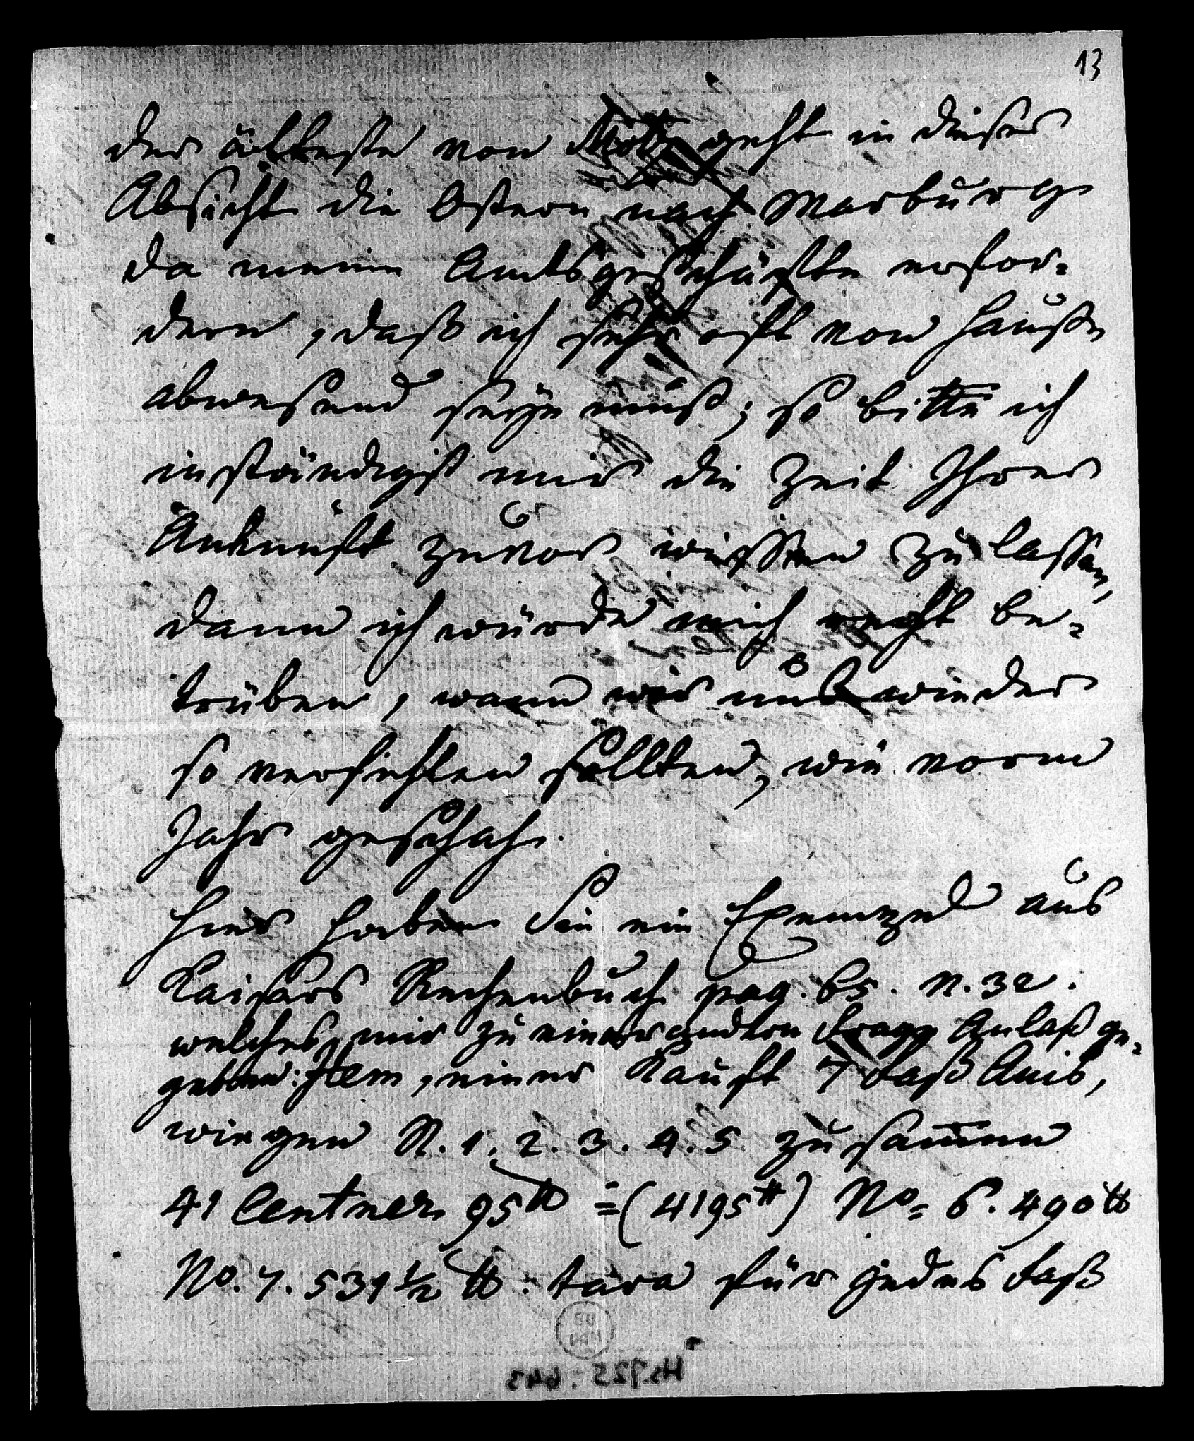 13
der älteste von geht in dieser
Absicht die Ostern nach Marburg
da meine Amtsgeschäffte erfor=
dern, daß ich sehr oft von Hauße
abwesend seyn muß; so bitte ich
inständigst mir die Zeit Ihrer
Ankunft zuvor wissen zu lassen,
dann ich würde mich recht be=
trüben, wann wir uns wieder
so verfehlen sollten, wie vorm
Jahr geschah.
Hier haben Sie ein Exempel aus
Kaisers Rechenbuch pag. 65. N. 32.
welches mir zu einer andern Frage Anlaß ge=
geben: Item, einer Kauft 7 Faß Anis,
wiegen N. 1. 2. 3. 4. 5 zusammen
41 Centner 95 ℔ = (4195 ℔) No. 6. 490 ℔
No. 7. 531 ½ ℔. tara für jedes Faß
Hs. 725 : 643